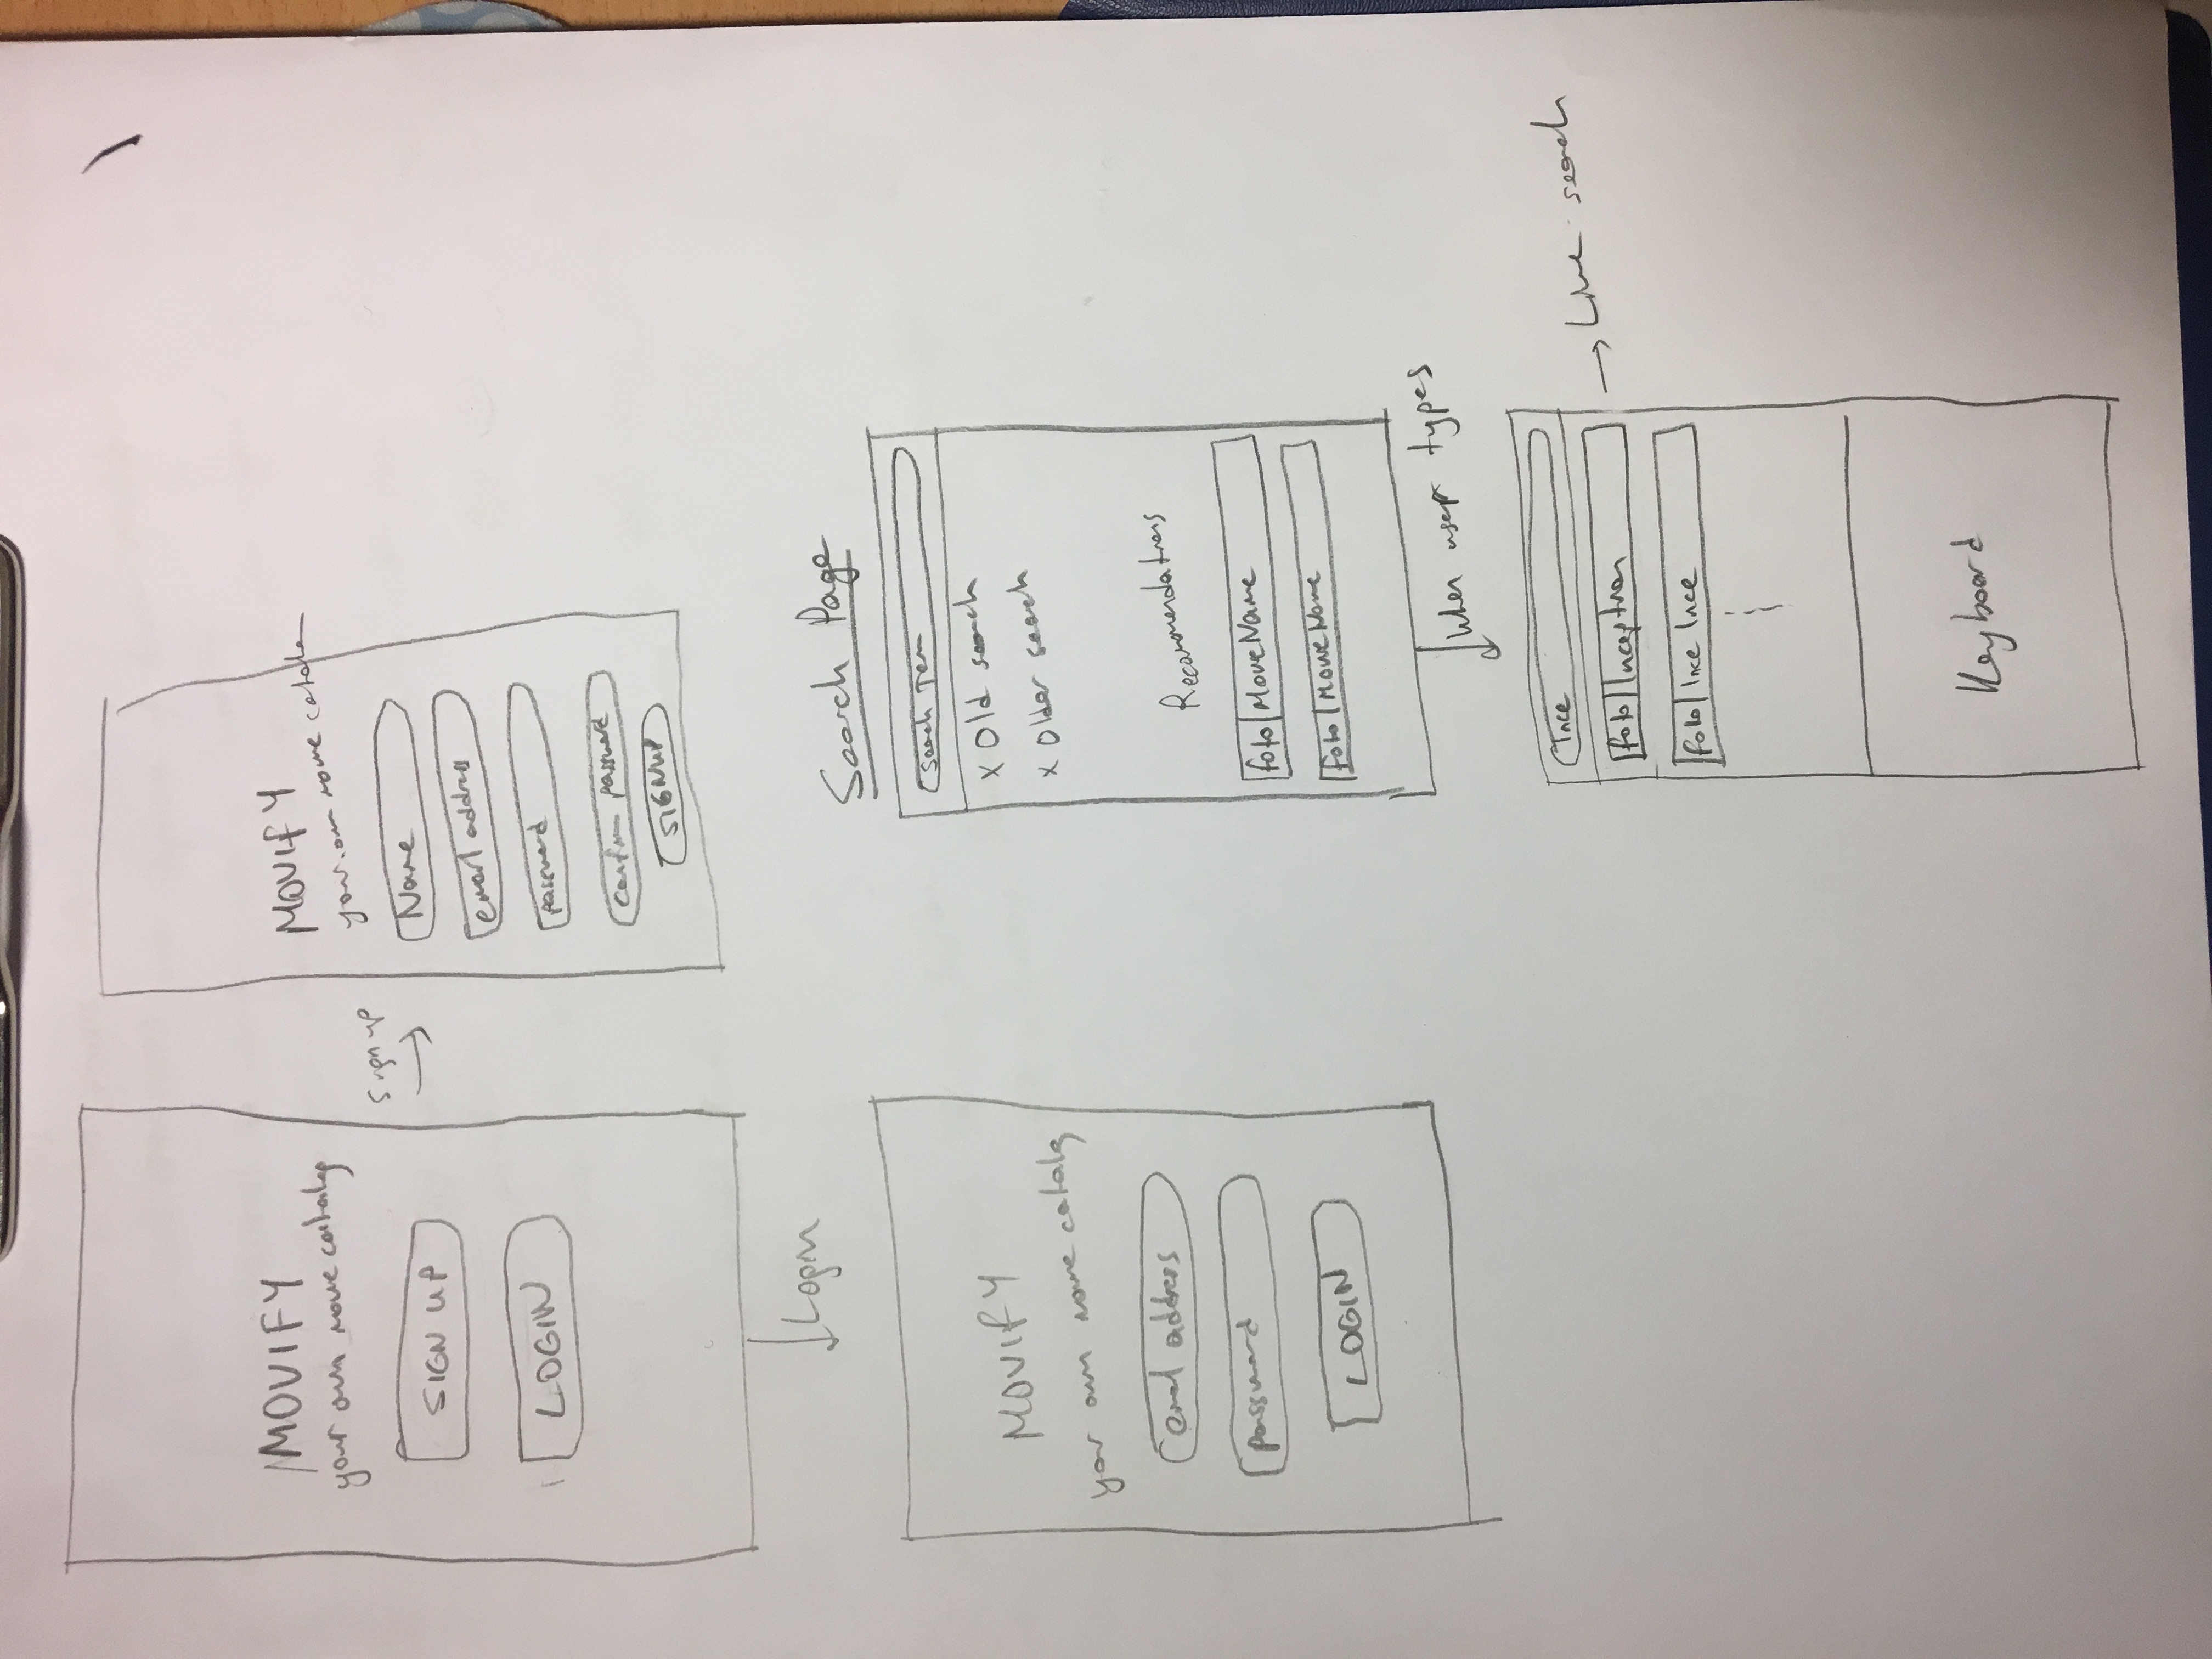 MOVIFY
your own movie catalog
SIGN UP
LOGIN
Sign up
MOVIFY
your own movie catalog
Name
email address
password
confirm password
SIGNUP
Login
MOVIFY
your own movie catalog
email address
password
LOGIN
Search Page
Search Term
x Old search
x Older search
Recommendations
foto MovieName
foto MovieName
When user types
Ince
foto Inception
foto Ince Ince
Live search
Keyboard